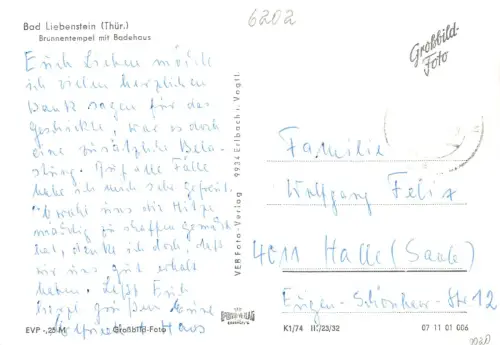 6202
Bad Liebenstein (Thür.)
Brunnentempel mit Badehaus
Großbild-
Foto
Euch Lieben möchte
ich vielen herzlichen
Dank sagen für das
Geschickte, war es doch
eine zusätzliche Bela-
stung. Auf alle Fälle
habe ich mich sehr gefreut.
Obwohl uns die Hitze
mächtig zu schaffen gemacht
hat, denke ich doch, daß
wir uns gut erholt
haben. Laßt Euch
grüßen
Haus
VEB Foto-Verlag 9934 Erlbach i. Vogtl.
Familie
Wolfgang Felix
4011 Halle (Saale)
Eugen-Schönhaar-Str 12
EVP -,25 M Großbild-Foto
K1/74 II/23/32 07 11 01 006